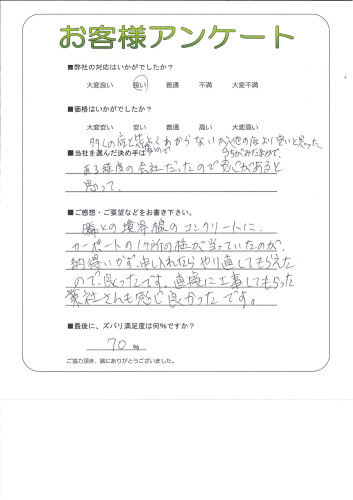 お客様アンケート
■弊社の対応はいかがでしたか？
大変良い 良い 普通 不満 大変不満
■価格はいかがでしたか？
大変安い 安い 普通 高い 大変高い
多くの店と
よくわからないが他の店より安いと思った。
■当社を選んだ決め手は？
ある程度の会社だったので安心があると
思って。
■ご感想・ご要望などをお書き下さい。
隣との境界線のコンクリートに、
カーポートの1ヶ所の柱が当っていたのが、
納得いかず、申し入れたらやり直してもらえた
ので、良かったです。直接に工事してもらった
業社さんも感じ良かったです。
■最後に、ズバリ満足度は何%ですか？
70 %
ご協力頂き、誠にありがとうございました。